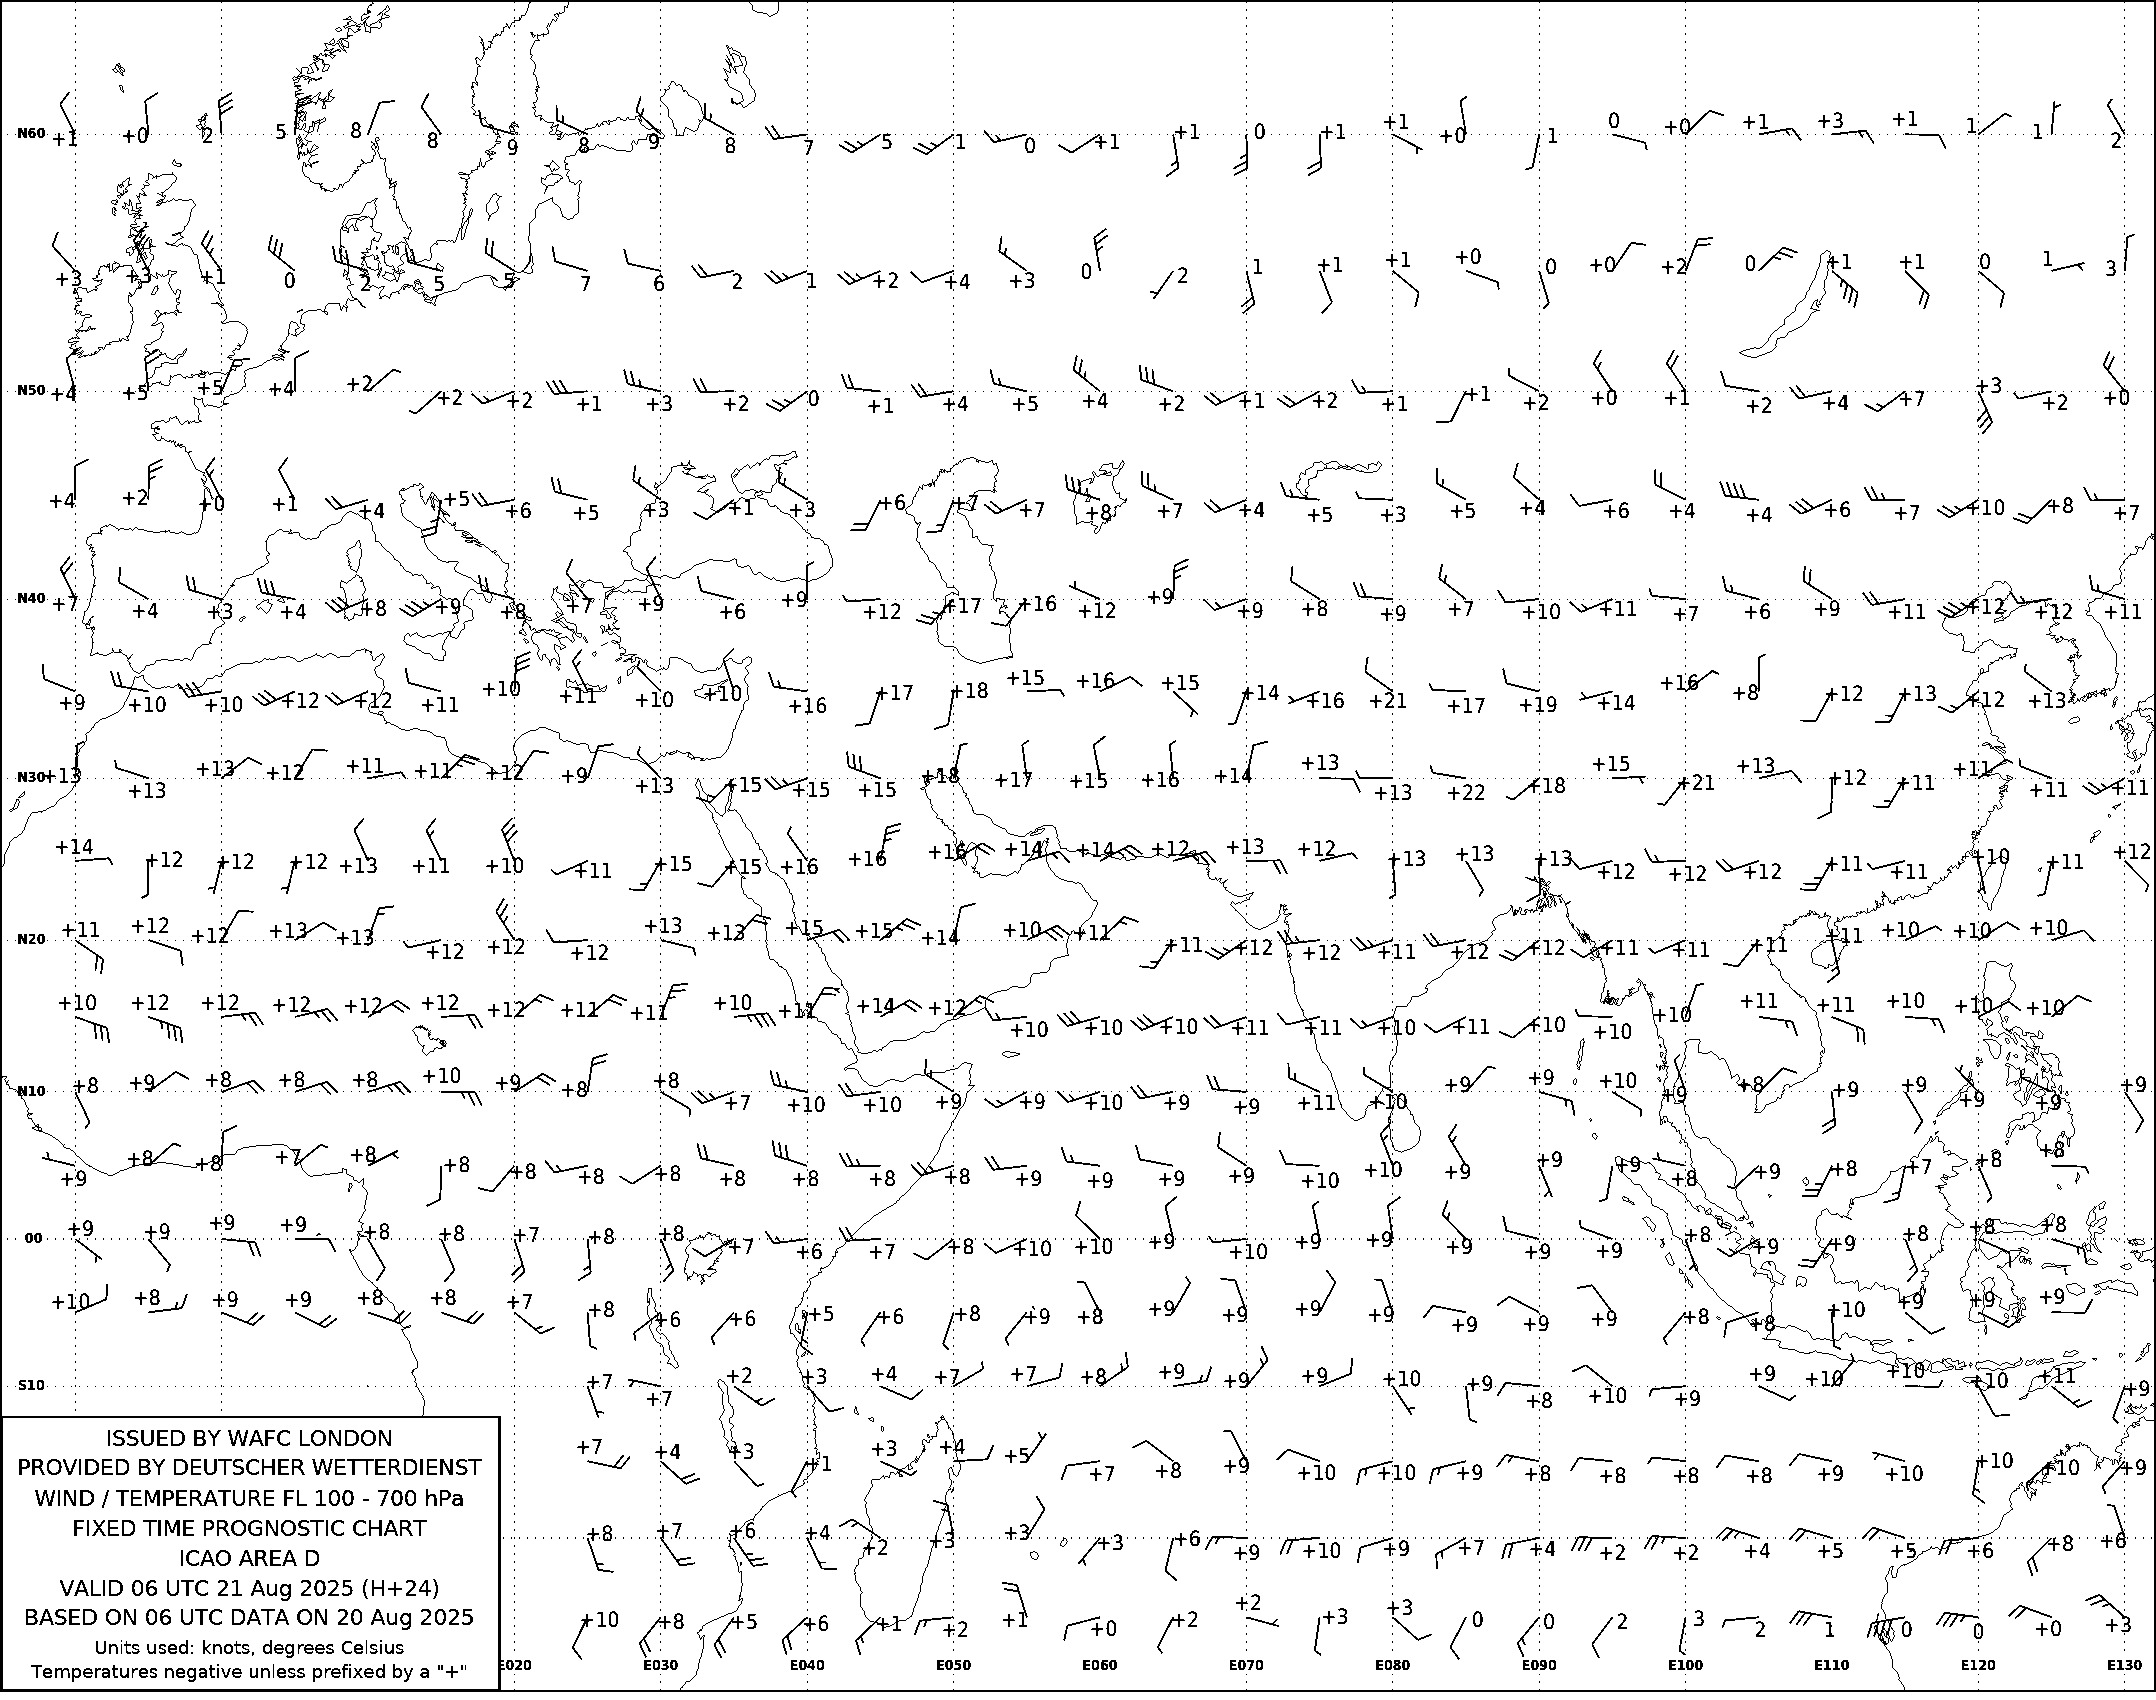 N60 +1 +0 2 5 8 8 9 8 9 8 7 5 1 0 +1 +1 0 +1 +1 +0 1 0 +0 +1 +3 +1 1 1 2
+3 +3 +1 0 2 5 5 7 6 2 1 +2 +4 +3 0 2 1 +1 +1 +0 0 +0 +2 0 +1 +1 0 1 3
N50 +4 +5 +5 +4 +2 +2 +2 +1 +3 +2 0 +1 +4 +5 +4 +2 +1 +2 +1 +1 +2 +0 +1 +2 +4 +7 +3 +2 +0
+4 +2 +0 +1 +4 +5 +6 +5 +3 +1 +3 +6 +7 +7 +8 +7 +4 +5 +3 +5 +4 +6 +4 +4 +6 +7 +10 +8 +7
N40 +7 +4 +3 +4 +8 +9 +8 +7 +9 +6 +9 +12 +17 +16 +12 +9 +9 +8 +9 +7 +10 +11 +7 +6 +9 +11 +12 +12 +11
+9 +10 +10 +12 +12 +11 +10 +11 +10 +10 +16 +17 +18 +15 +16 +15 +14 +16 +21 +17 +19 +14 +16 +8 +12 +13 +12 +13
N30 +13 +13 +13 +12 +11 +11 +12 +9 +13 +15 +15 +15 +18 +17 +15 +16 +14 +13 +13 +22 +18 +15 +21 +13 +12 +11 +11 +11 +11
+14 +12 +12 +12 +13 +11 +10 +11 +15 +15 +16 +16 +16 +14 +14 +12 +13 +12 +13 +13 +13 +12 +12 +12 +11 +11 +10 +11 +12
N20 +11 +12 +12 +13 +13 +12 +12 +12 +13 +13 +15 +15 +14 +10 +11 +11 +12 +12 +11 +12 +12 +11 +11 +11 +11 +10 +10 +10
+10 +12 +12 +12 +12 +12 +12 +12 +11 +10 +11 +14 +12 +10 +10 +10 +11 +11 +10 +11 +10 +10 +10 +11 +11 +10 +10 +10
N10 +8 +9 +8 +8 +8 +10 +9 +8 +8 +7 +10 +10 +9 +9 +10 +9 +9 +11 +10 +9 +9 +10 +9 +8 +9 +9 +9 +9 +9
+9 +8 +8 +7 +8 +8 +8 +8 +8 +8 +8 +8 +8 +9 +9 +9 +9 +10 +10 +9 +9 +9 +8 +9 +8 +7 +8 +8
00 +9 +9 +9 +9 +8 +8 +7 +8 +8 +7 +6 +7 +8 +10 +10 +9 +10 +9 +9 +9 +9 +9 +8 +9 +9 +8 +8 +8
+10 +8 +9 +9 +8 +8 +7 +8 +6 +6 +5 +6 +8 +9 +8 +9 +9 +9 +9 +9 +9 +9 +8 +8 +10 +9 +9 +9
S10 +7 +7 +2 +3 +4 +7 +7 +8 +9 +9 +9 +10 +9 +8 +10 +9 +9 +10 +10 +10 +11 +9
+7 +4 +3 +1 +3 +4 +5 +7 +8 +9 +10 +10 +9 +8 +8 +8 +8 +9 +10 +10 +10 +9
+8 +7 +6 +4 +2 +3 +3 +3 +6 +9 +10 +9 +7 +4 +2 +2 +4 +5 +5 +6 +8 +6
+10 +8 +5 +6 +1 +2 +1 +0 +2 +2 +3 +3 0 0 2 3 2 1 0 0 +0 +3
E020 E030 E040 E050 E060 E070 E080 E090 E100 E110 E120 E130
ISSUED BY WAFC LONDON
PROVIDED BY DEUTSCHER WETTERDIENST
WIND / TEMPERATURE FL 100 - 700 hPa
FIXED TIME PROGNOSTIC CHART
ICAO AREA D
VALID 06 UTC 21 Aug 2025 (H+24)
BASED ON 06 UTC DATA ON 20 Aug 2025
Units used: knots, degrees Celsius
Temperatures negative unless prefixed by a "+"